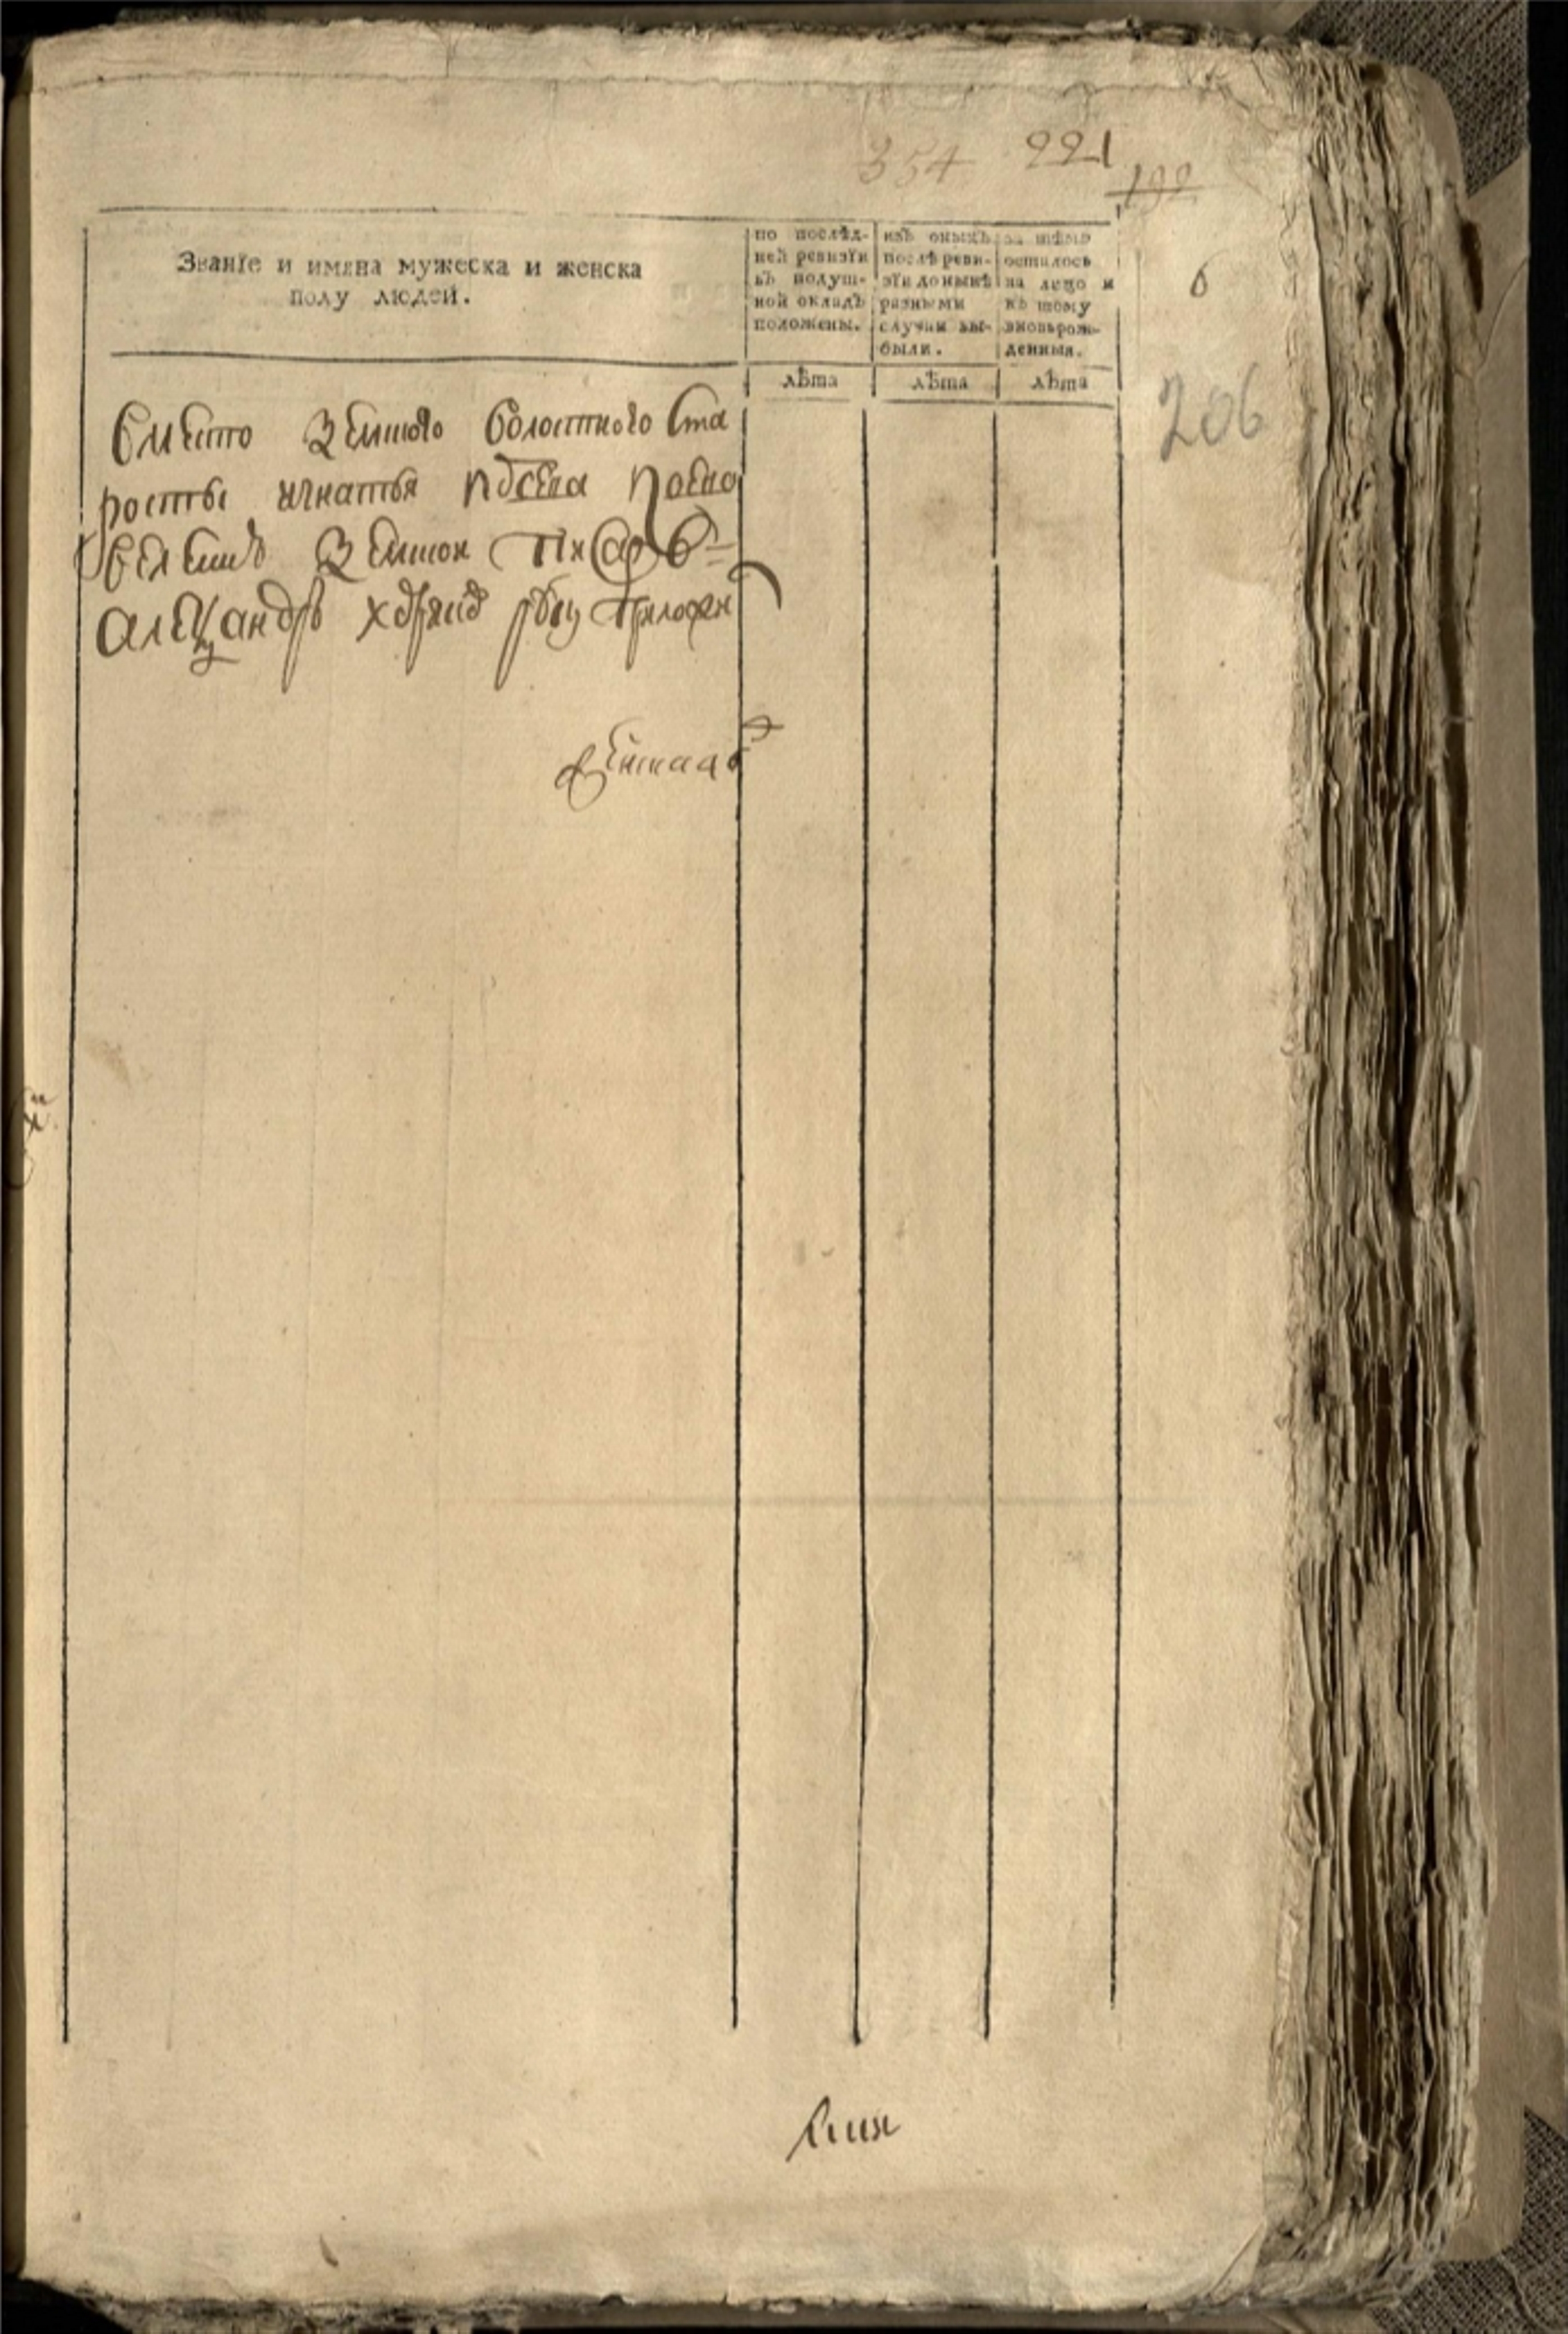 354 221
199
Званїе и имяна мужеска и женска
полу людей.
по послѣд-
ней ревизїи
въ подуш-
ной окладъ
положены.
изъ оныхъ
послѣ реви-
зїи до нынѣ
разными
случаи вы-
были.
за тѣмъ
осталось
на лицо и
къ тому
вновьрож-
денныя.
6
лѣта лѣта лѣта
206
вместо земского волостного ста
росты игнатья по ево
веленю земской писарь
александръ руку приложи